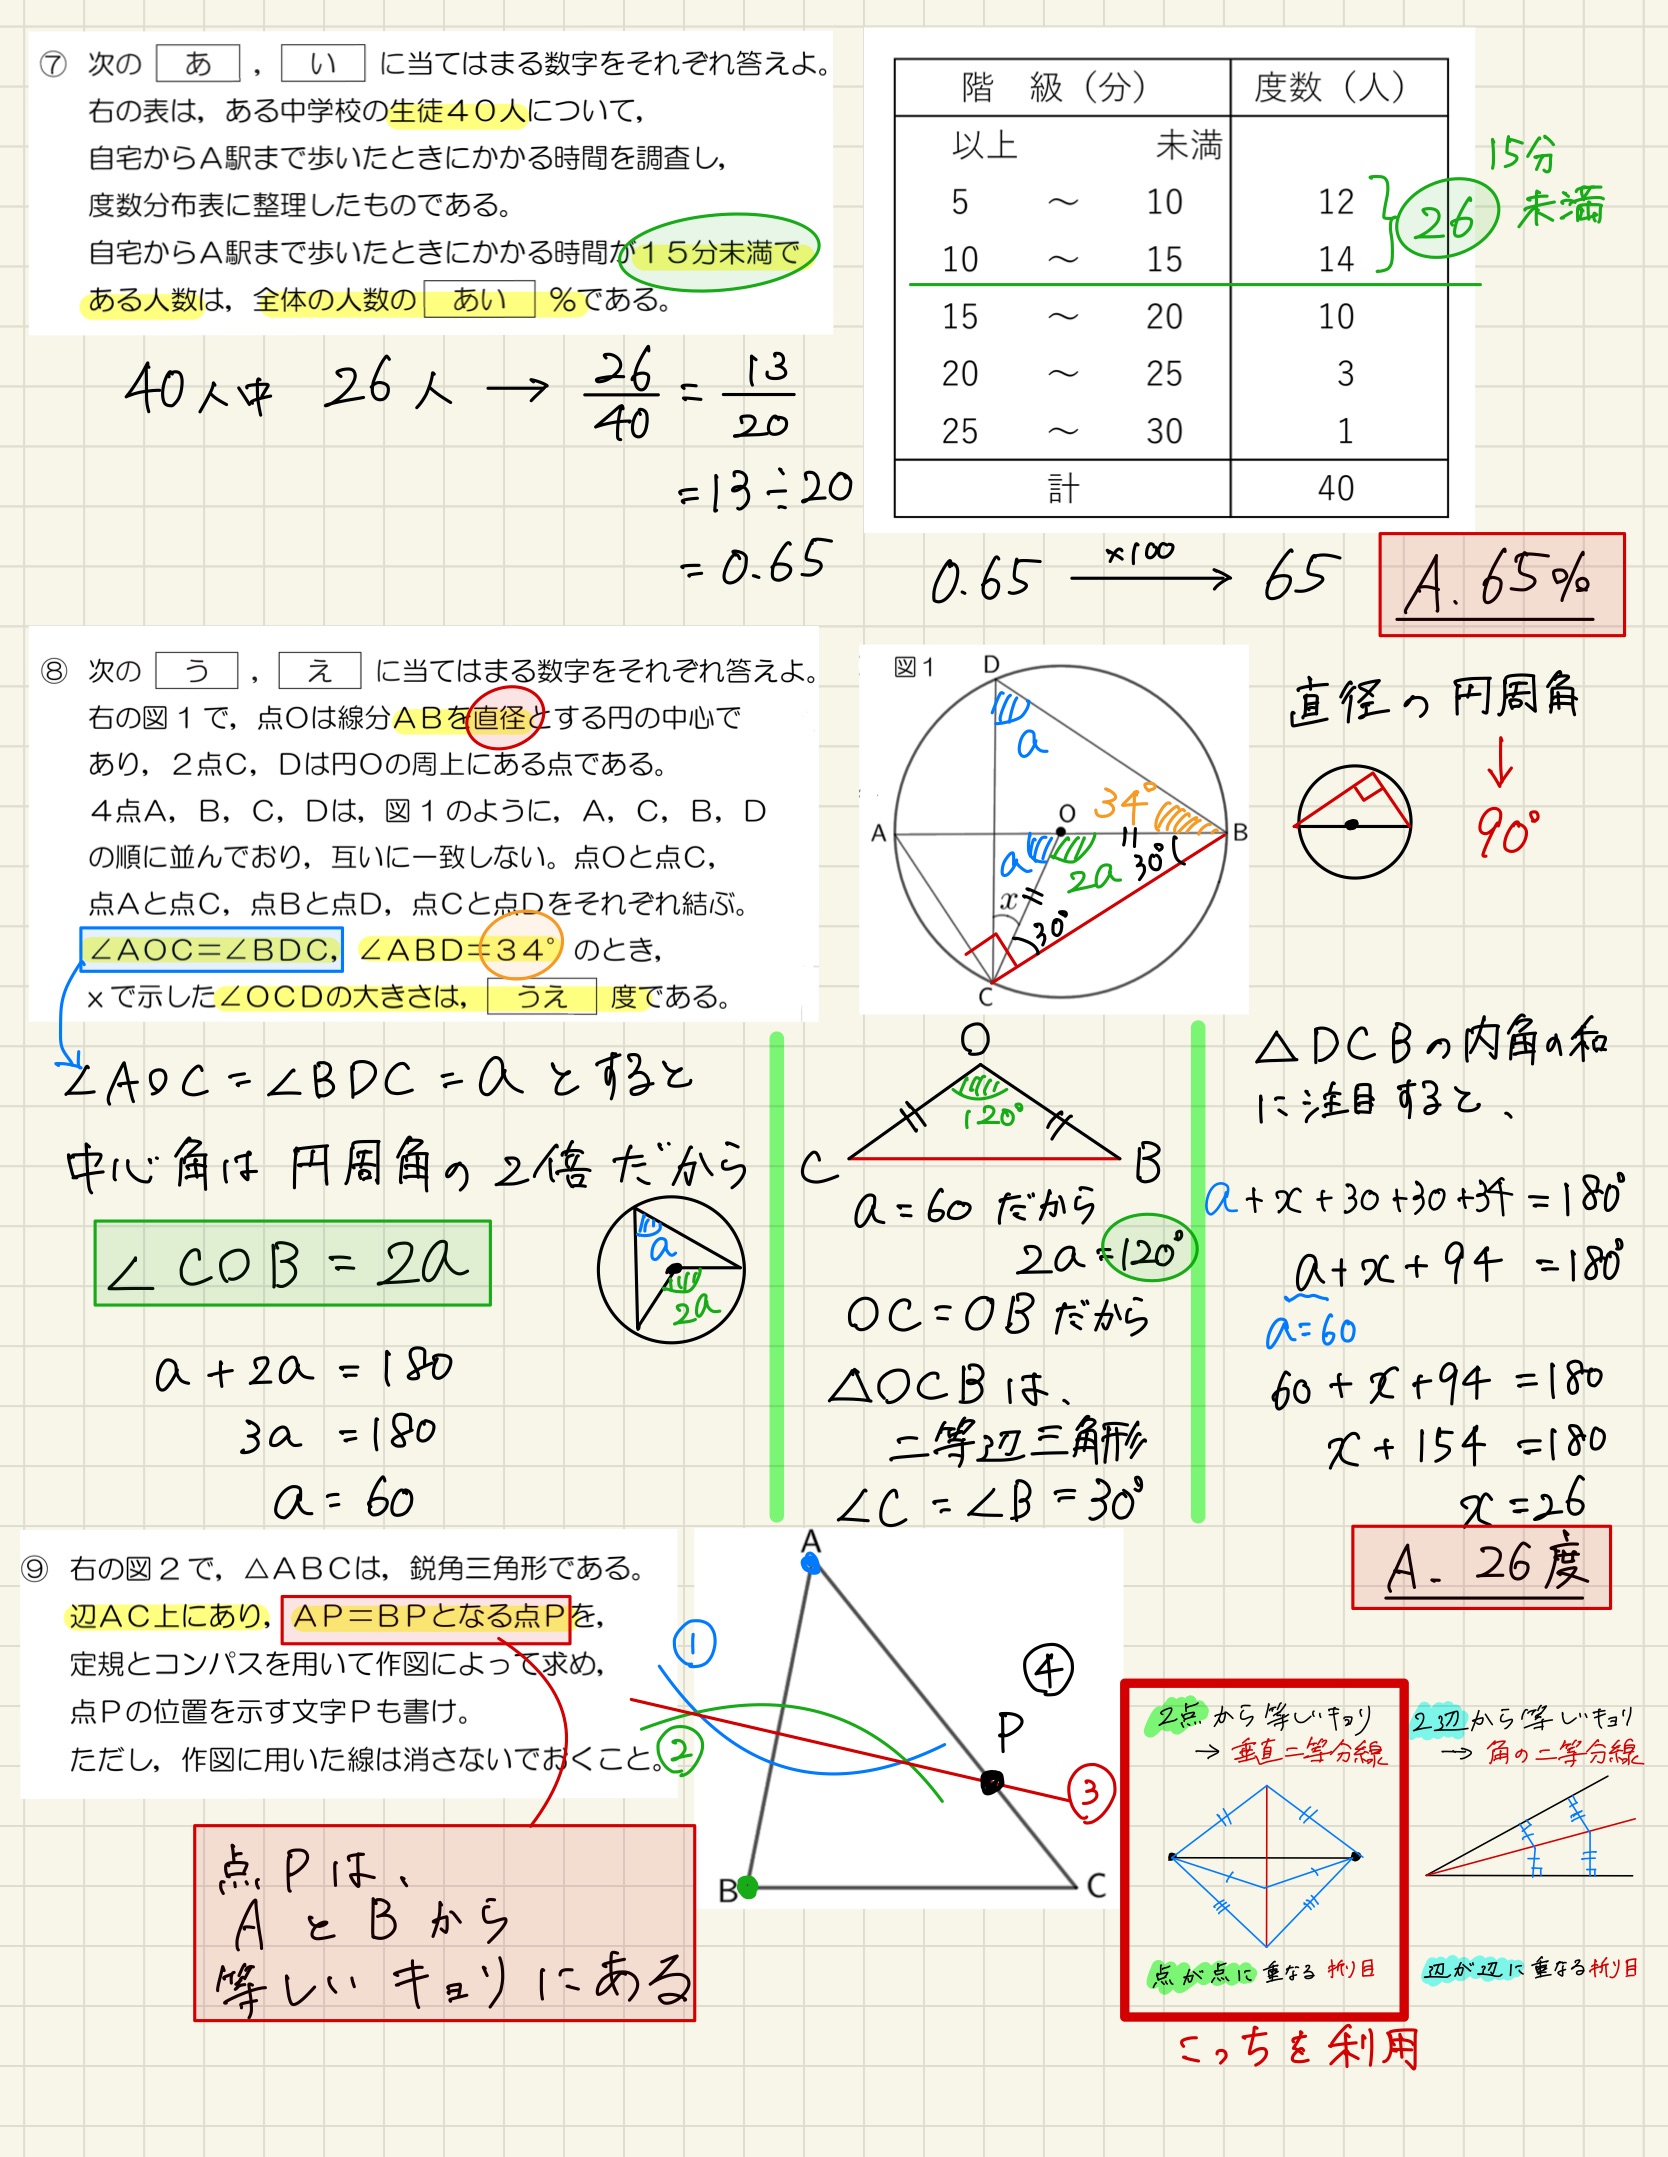 ⑦ 次の あ ， い に当てはまる数字をそれぞれ答えよ。
右の表は，ある中学校の生徒４０人について，
自宅からＡ駅まで歩いたときにかかる時間を調査し，
度数分布表に整理したものである。
自宅からＡ駅まで歩いたときにかかる時間が１５分未満で
ある人数は，全体の人数の あい ％である。
階 級（分） 度数（人）
以上 未満
5 ～ 10 12
10 ～ 15 14
15 ～ 20 10
20 ～ 25 3
25 ～ 30 1
計 40
26
15分
未満
40人中 26人 → 26/40 = 13/20
=13÷20
=0.65
0.65 ×100 → 65
A. 65%
⑧ 次の う ， え に当てはまる数字をそれぞれ答えよ。
右の図１で，点Ｏは線分ＡＢを直径とする円の中心で
あり，２点Ｃ，Ｄは円Ｏの周上にある点である。
４点Ａ，Ｂ，Ｃ，Ｄは，図１のように，Ａ，Ｃ，Ｂ，Ｄ
の順に並んでおり，互いに一致しない。点Ｏと点Ｃ，
点Ａと点Ｃ，点Ｂと点Ｄ，点Ｃと点Ｄをそれぞれ結ぶ。
∠ＡＯＣ＝∠ＢＤＣ，∠ＡＢＤ＝３４° のとき，
xで示した∠ＯＣＤの大きさは， うえ 度である。
図１
D
a
34°
A
O
B
a
2a
30°
x
30°
C
直径の円周角
↓
90°
∠AOC=∠BDC=aとすると
中心角は円周角の2倍だから
∠COB=2a
a
2a
a+2a=180
3a=180
a=60
O
120°
C
B
a=60だから
2a=120°
OC=OBだから
△OCBは、
二等辺三角形
∠C=∠B=30°
△DCBの内角の和
に注目すると、
a+x+30+30+34=180°
a+x+94=180°
a=60
60+x+94=180
x+154=180
x=26
A. 26度
⑨ 右の図２で，△ＡＢＣは，鋭角三角形である。
辺ＡＣ上にあり，ＡＰ＝ＢＰとなる点Ｐを，
定規とコンパスを用いて作図によって求め，
点Ｐの位置を示す文字Ｐも書け。
ただし，作図に用いた線は消さないでおくこと。
点Pは、
AとBから
等しいキョリにある
A
①
④
P
②
③
B
C
2点から等しいキョリ
→垂直二等分線
点が点に重なる折り目
2辺から等しいキョリ
→角の二等分線
辺が辺に重なる折り目
こっちを利用